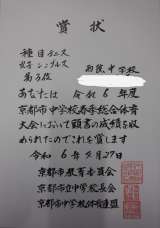 賞状
種目 テニス
女子 シングルス
第3位
中学校
あなたは 令和6年度
京都市中学校春季総合体育
大会において頭書の成績を収
められたのでこれを賞します
令和6年 月27日
京都市教育委員会
京都市立中学校長会
京都市中学校体育連盟